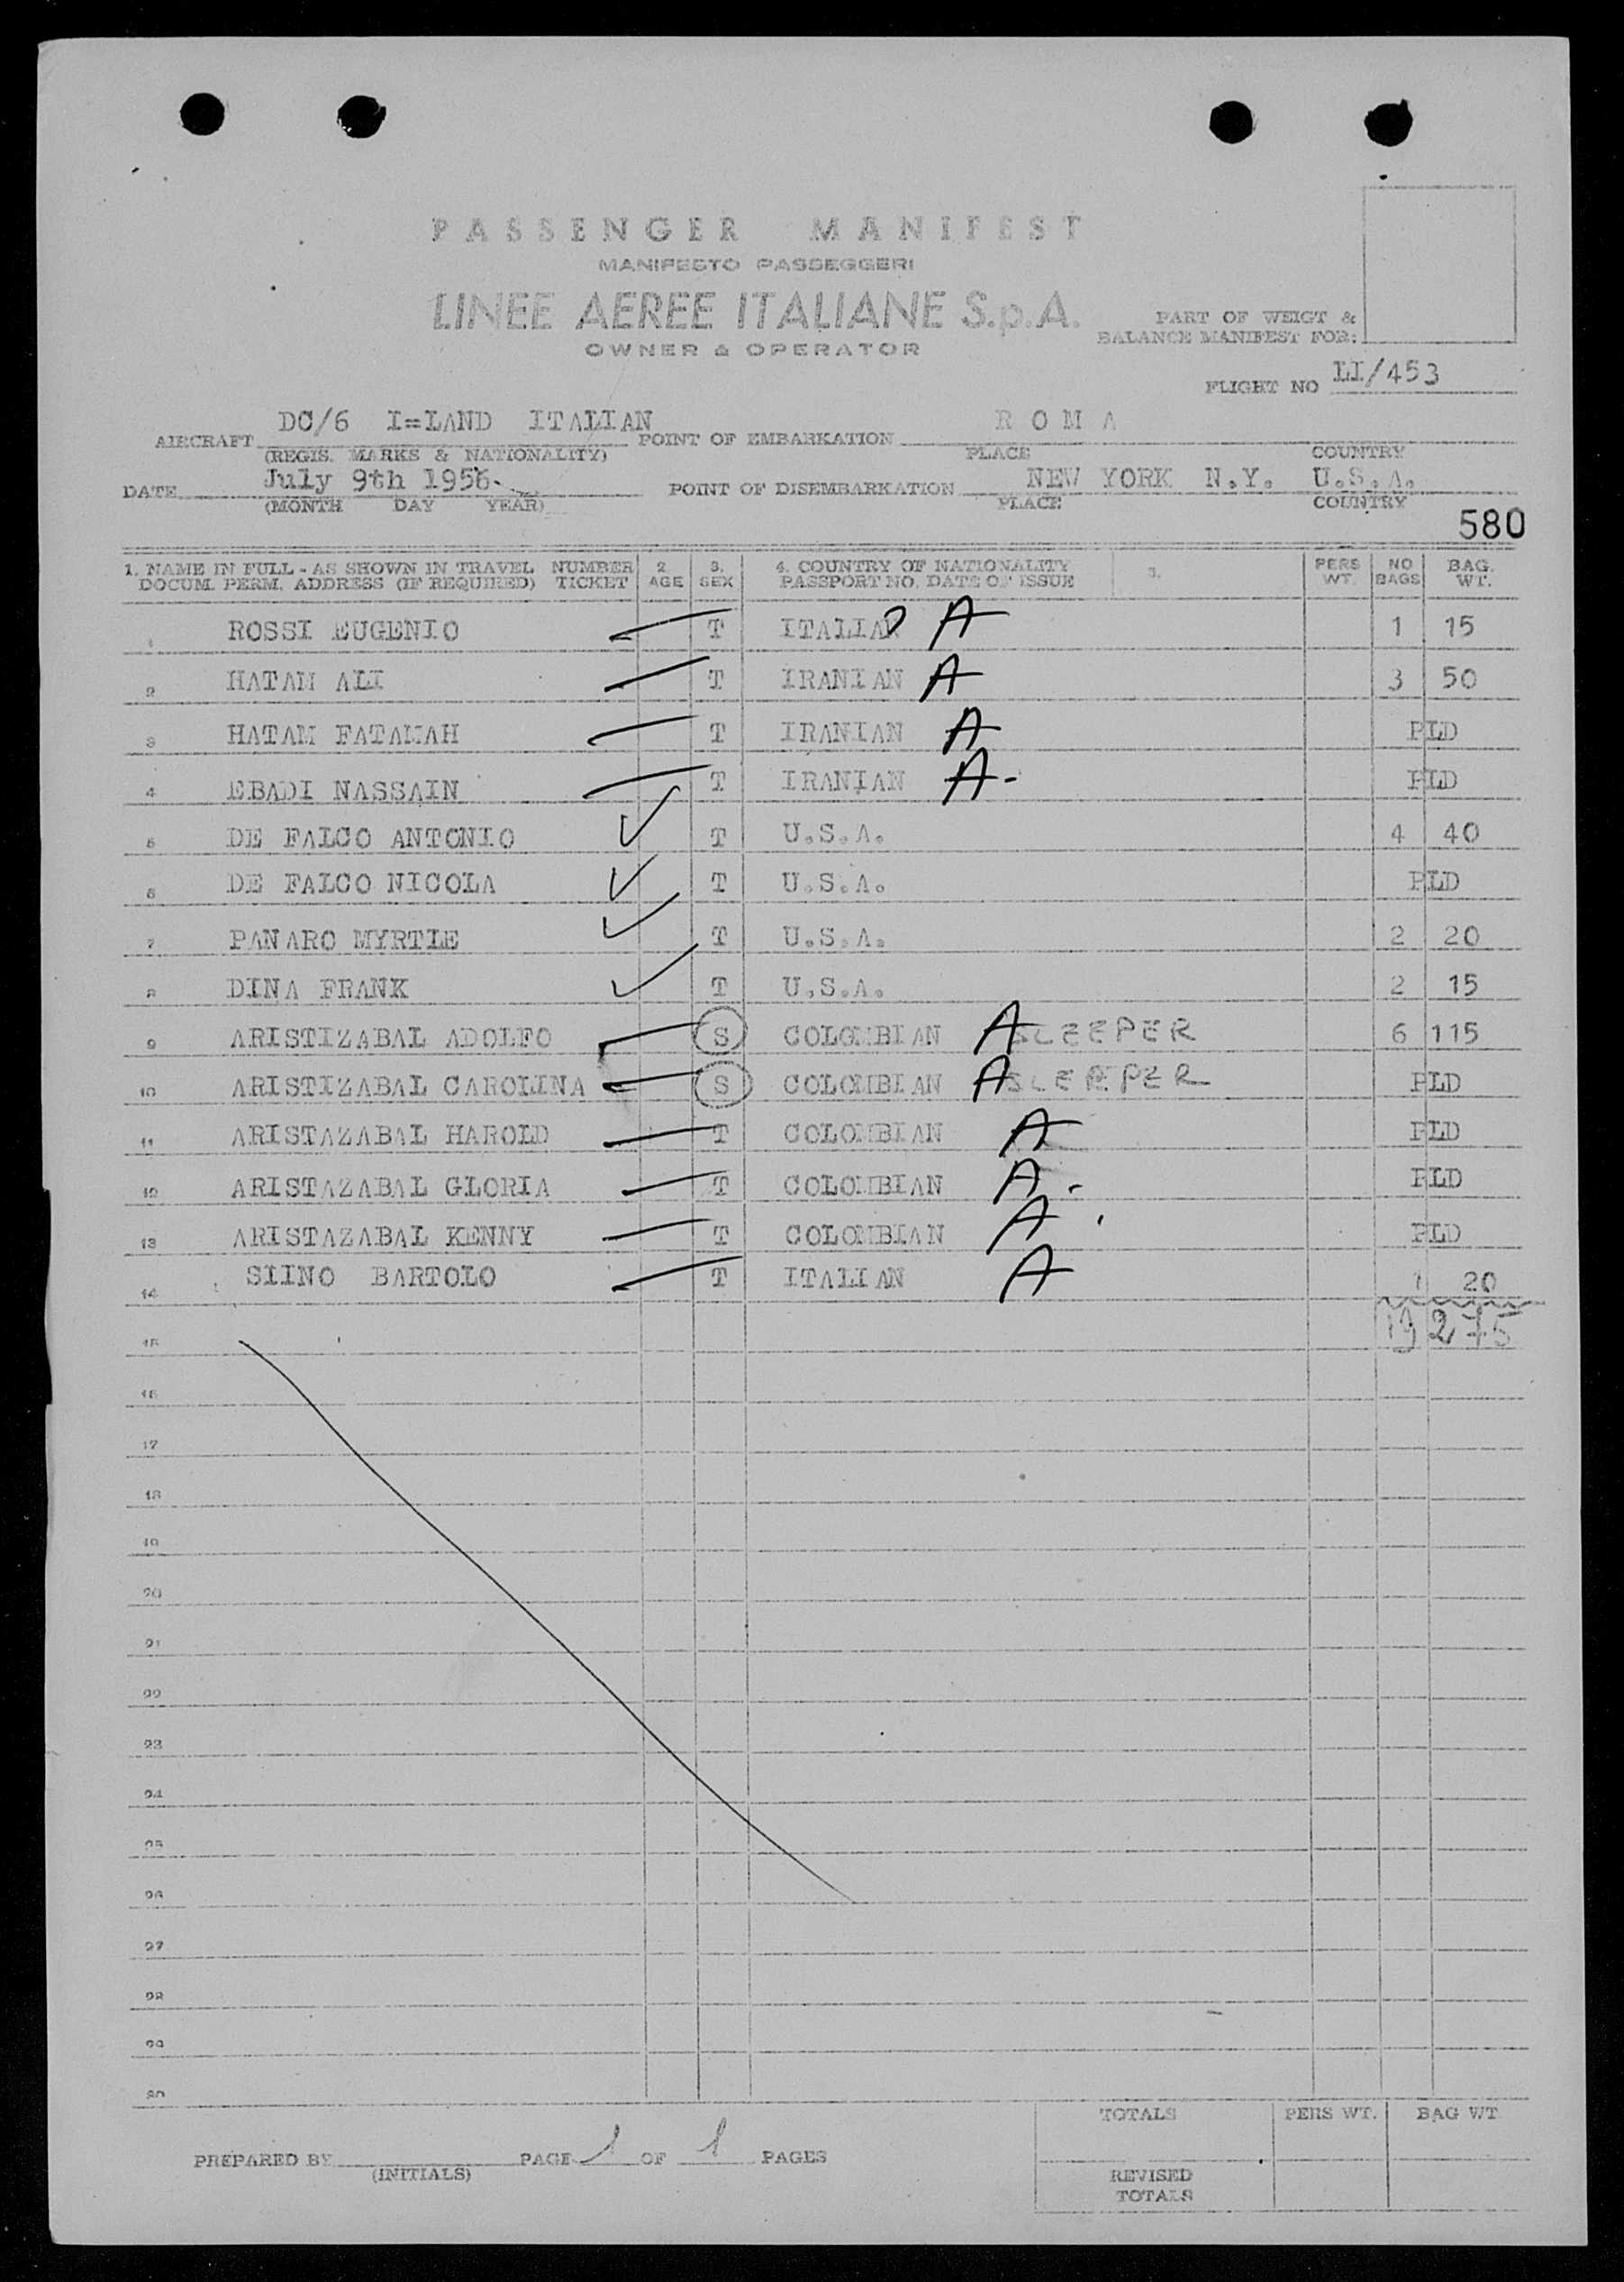 PASSENGER MANIFEST
MANIFESTO PASSEGGERI
LINEE AEREE ITALIANE S.p.A.
OWNER & OPERATOR
PART OF WEIGT &
BALANCE MANIFEST FOR:
FLIGHT NO LI/453
AIRCRAFT DC/6 I=LAND ITALIAN POINT OF EMBARKATION R O M A
(REGIS. MARKS & NATIONALITY) PLACE COUNTRY
DATE July 9th 1956. POINT OF DISEMBARKATION NEW YORK N.Y. U.S.A.
(MONTH DAY YEAR) PLACE COUNTRY
580
1. NAME IN FULL - AS SHOWN IN TRAVEL NUMBER 2. 3. 4. COUNTRY OF NATIONALITY PERS NO BAG.
DOCUM. PERM. ADDRESS (IF REQUIRED) TICKET AGE SEX PASSPORT NO. DATE OF ISSUE WT. BAGS WT.
1 ROSSI EUGENIO T ITALIAN A 1 15
2 HATAM ALI T IRANIAN A 3 50
3 HATAM FATAMAH T IRANIAN A PLD
4 EBADI NASSAIN T IRANIAN A- PLD
5 DE FALCO ANTONIO T U.S.A. 4 40
6 DE FALCO NICOLA T U.S.A. PLD
7 PANARO MYRTLE T U.S.A. 2 20
8 DINA FRANK T U.S.A. 2 15
9 ARISTIZABAL ADOLFO S COLOMBIAN A SLEEPER 6 115
10 ARISTIZABAL CAROLINA S COLOMBIAN A SLEEPER PLD
11 ARISTAZABAL HAROLD T COLOMBIAN A PLD
12 ARISTAZABAL GLORIA T COLOMBIAN A. PLD
13 ARISTAZABAL KENNY T COLOMBIAN A PLD
14 SIINO BARTOLO T ITALIAN A 1 20
15 19 275
16
17
18
19
20
21
22
23
24
25
26
27
28
29
30
TOTALS PERS WT. BAG WT
PREPARED BY PAGE 1 OF 1 PAGES
(INITIALS)
REVISED
TOTALS